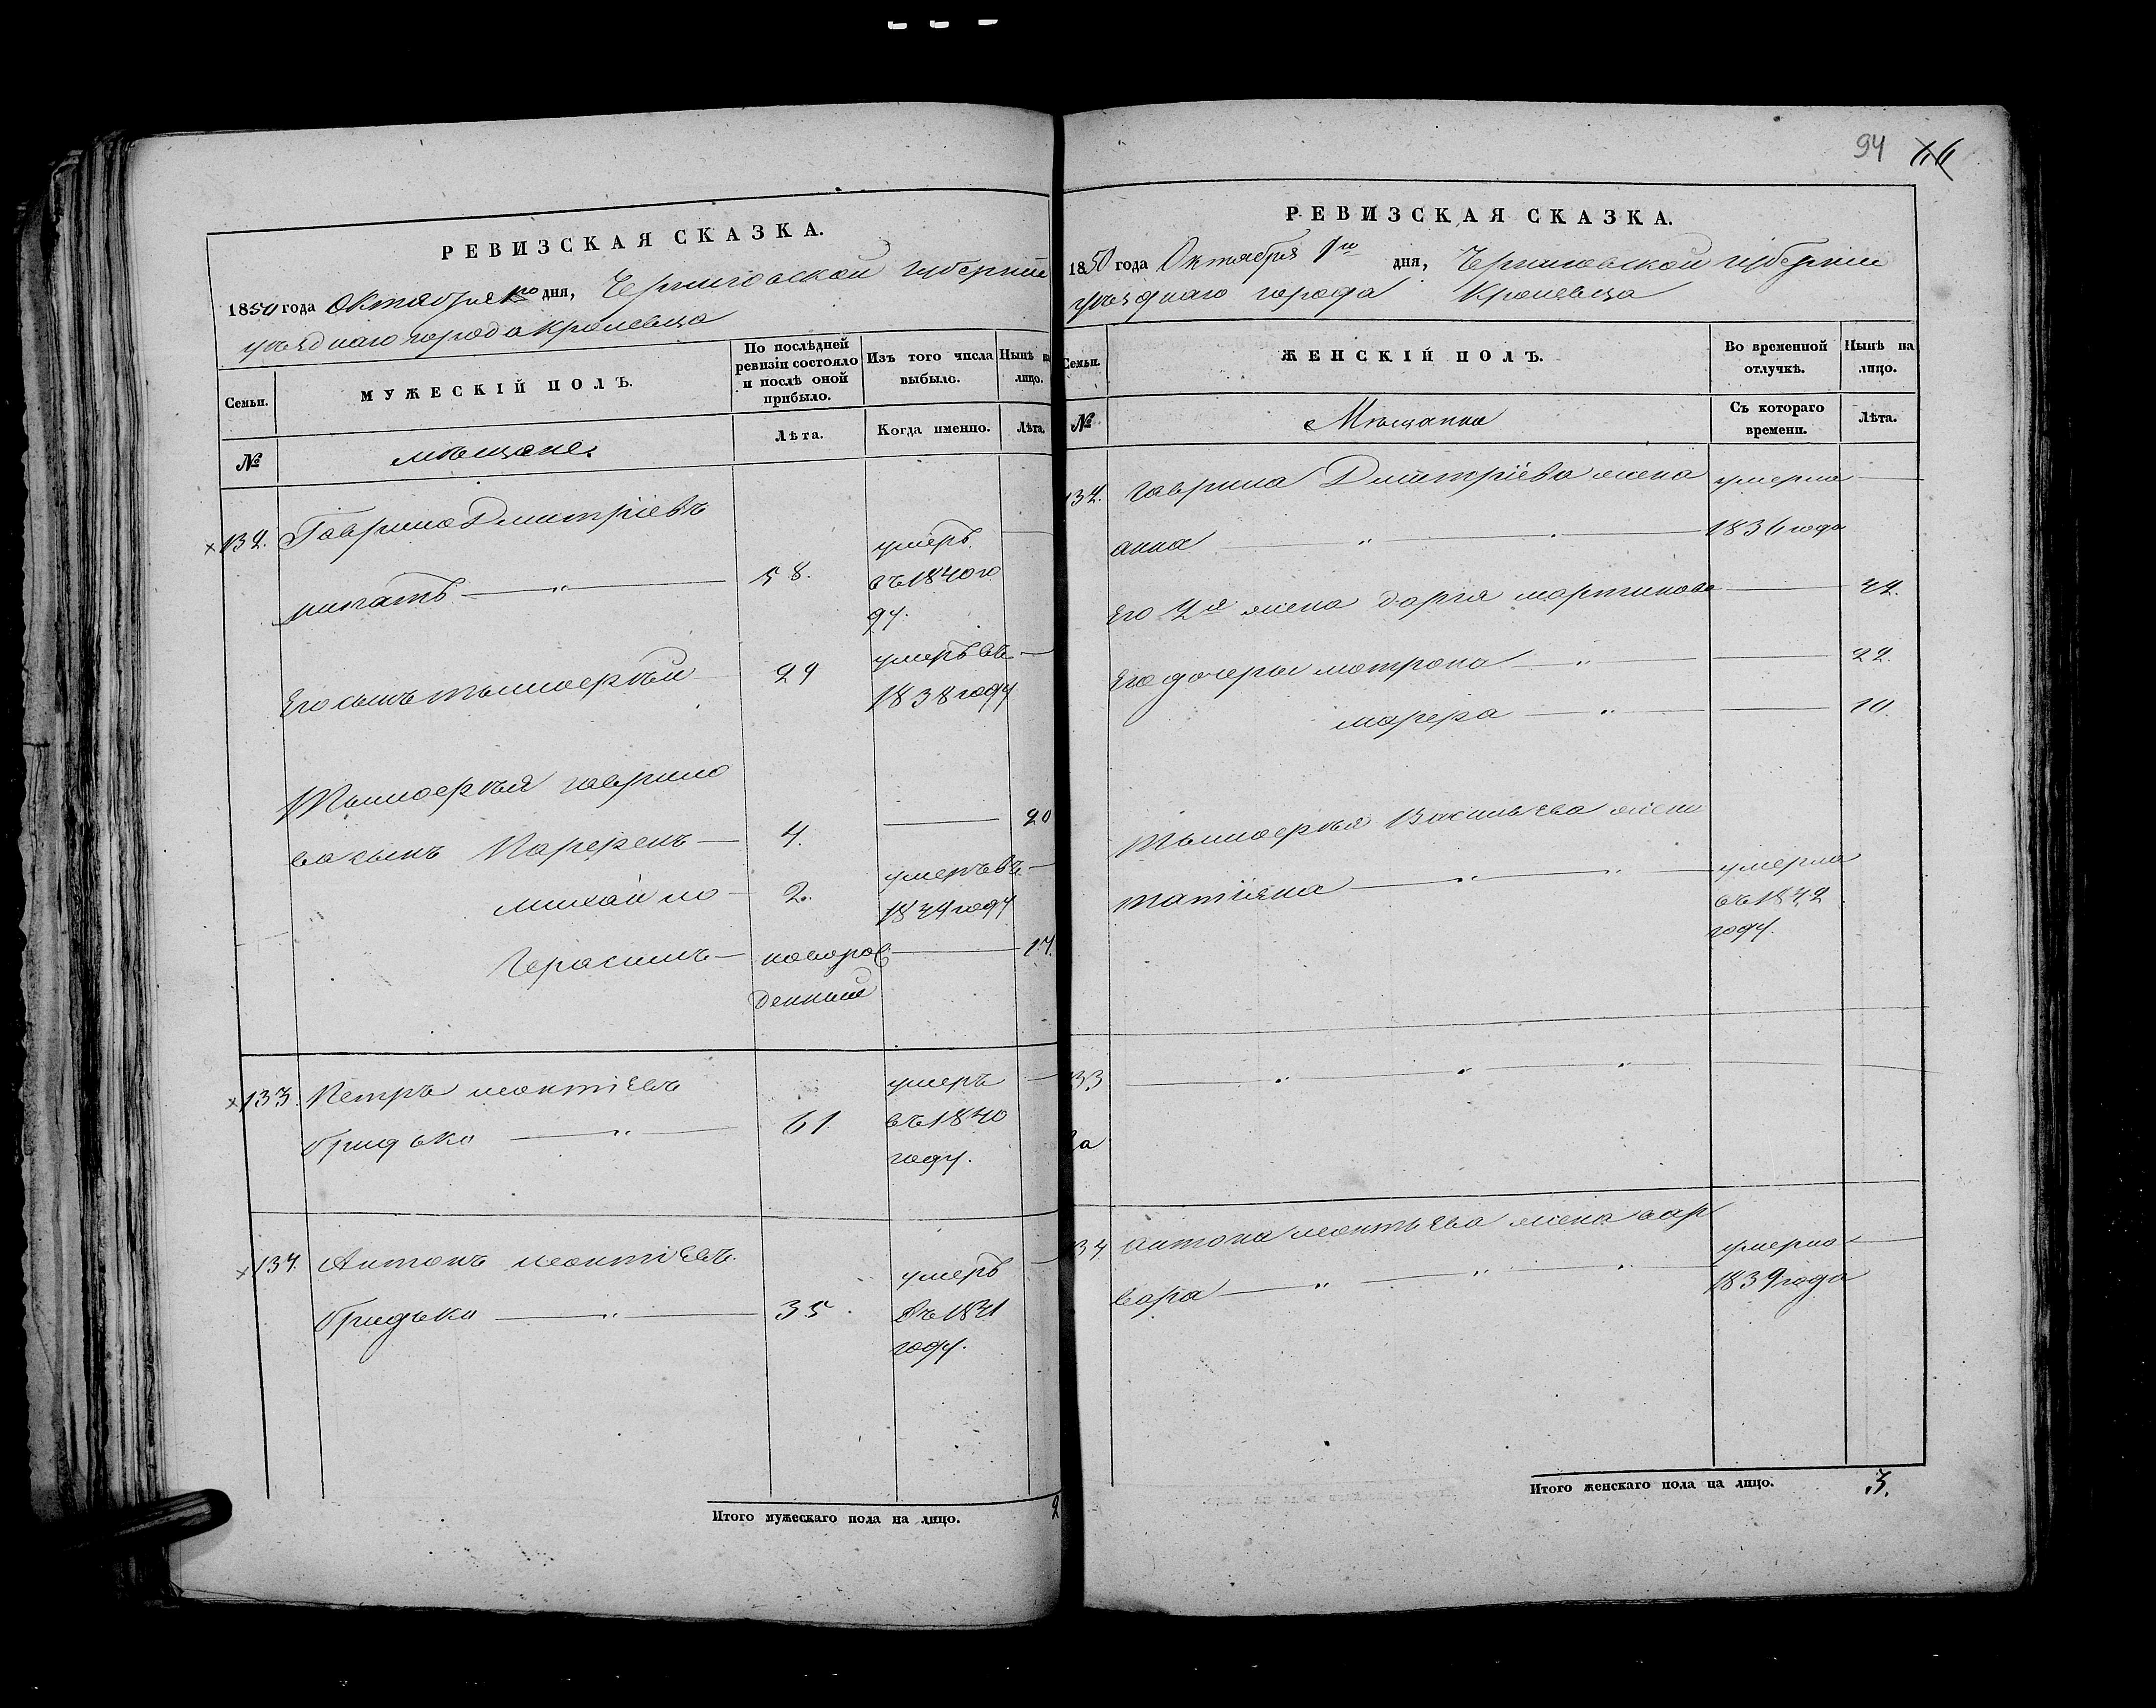 РЕВИЗСКАЯ СКАЗКА.
1850 года Октября 1го дня, Черниговской губерніи
уѣзднаго города Кролевца
Семьи.
МУЖЕСКІЙ ПОЛЪ.
По послѣдней ревизіи состояло и послѣ оной прибыло.
Изъ того числа выбыло.
Нынѣ на лицо.
№
мѣщане.
Лѣта.
Когда именно.
Лѣта.
132. Гаврило Дмитріевъ
58. умеръ въ 1840 го
ду.
Его сынъ тымоерѣй 29 умеръ въ
1838 году
Тымоерѣя гаврило
ва сынъ Парерѣнъ 4. 20
михайло 2. умеръ въ
1844 году
Герасимъ новорож 17.
денный
133. Петръ леонтіевъ умеръ
Гридько 61 въ 1840
году.
134. Антонъ леонтіевъ. умеръ
Гридько 35. въ 1841
году.
Итого мужескаго пола на лицо. 2
94
РЕВИЗСКАЯ СКАЗКА.
1850 года Октября 1го дня, Черниговской губерніи
уѣзднаго города Кролевца
Семьи.
ЖЕНСКІЙ ПОЛЪ.
Во временной отлучкѣ.
Нынѣ на лицо.
№
Мѣщанки
Съ котораго времени.
Лѣта.
132. гаврила Дмитріева жена умерла
анна 1836 года
Его 2я жена дарья мартинова 42.
Его дочеры мотрона 22.
10.
Васильева жена
татіяна умерла
въ 1842
году.
33
34 антона леонтьева жена вар
вара умерла
1839 года
Итого женскаго пола на лицо. 3.